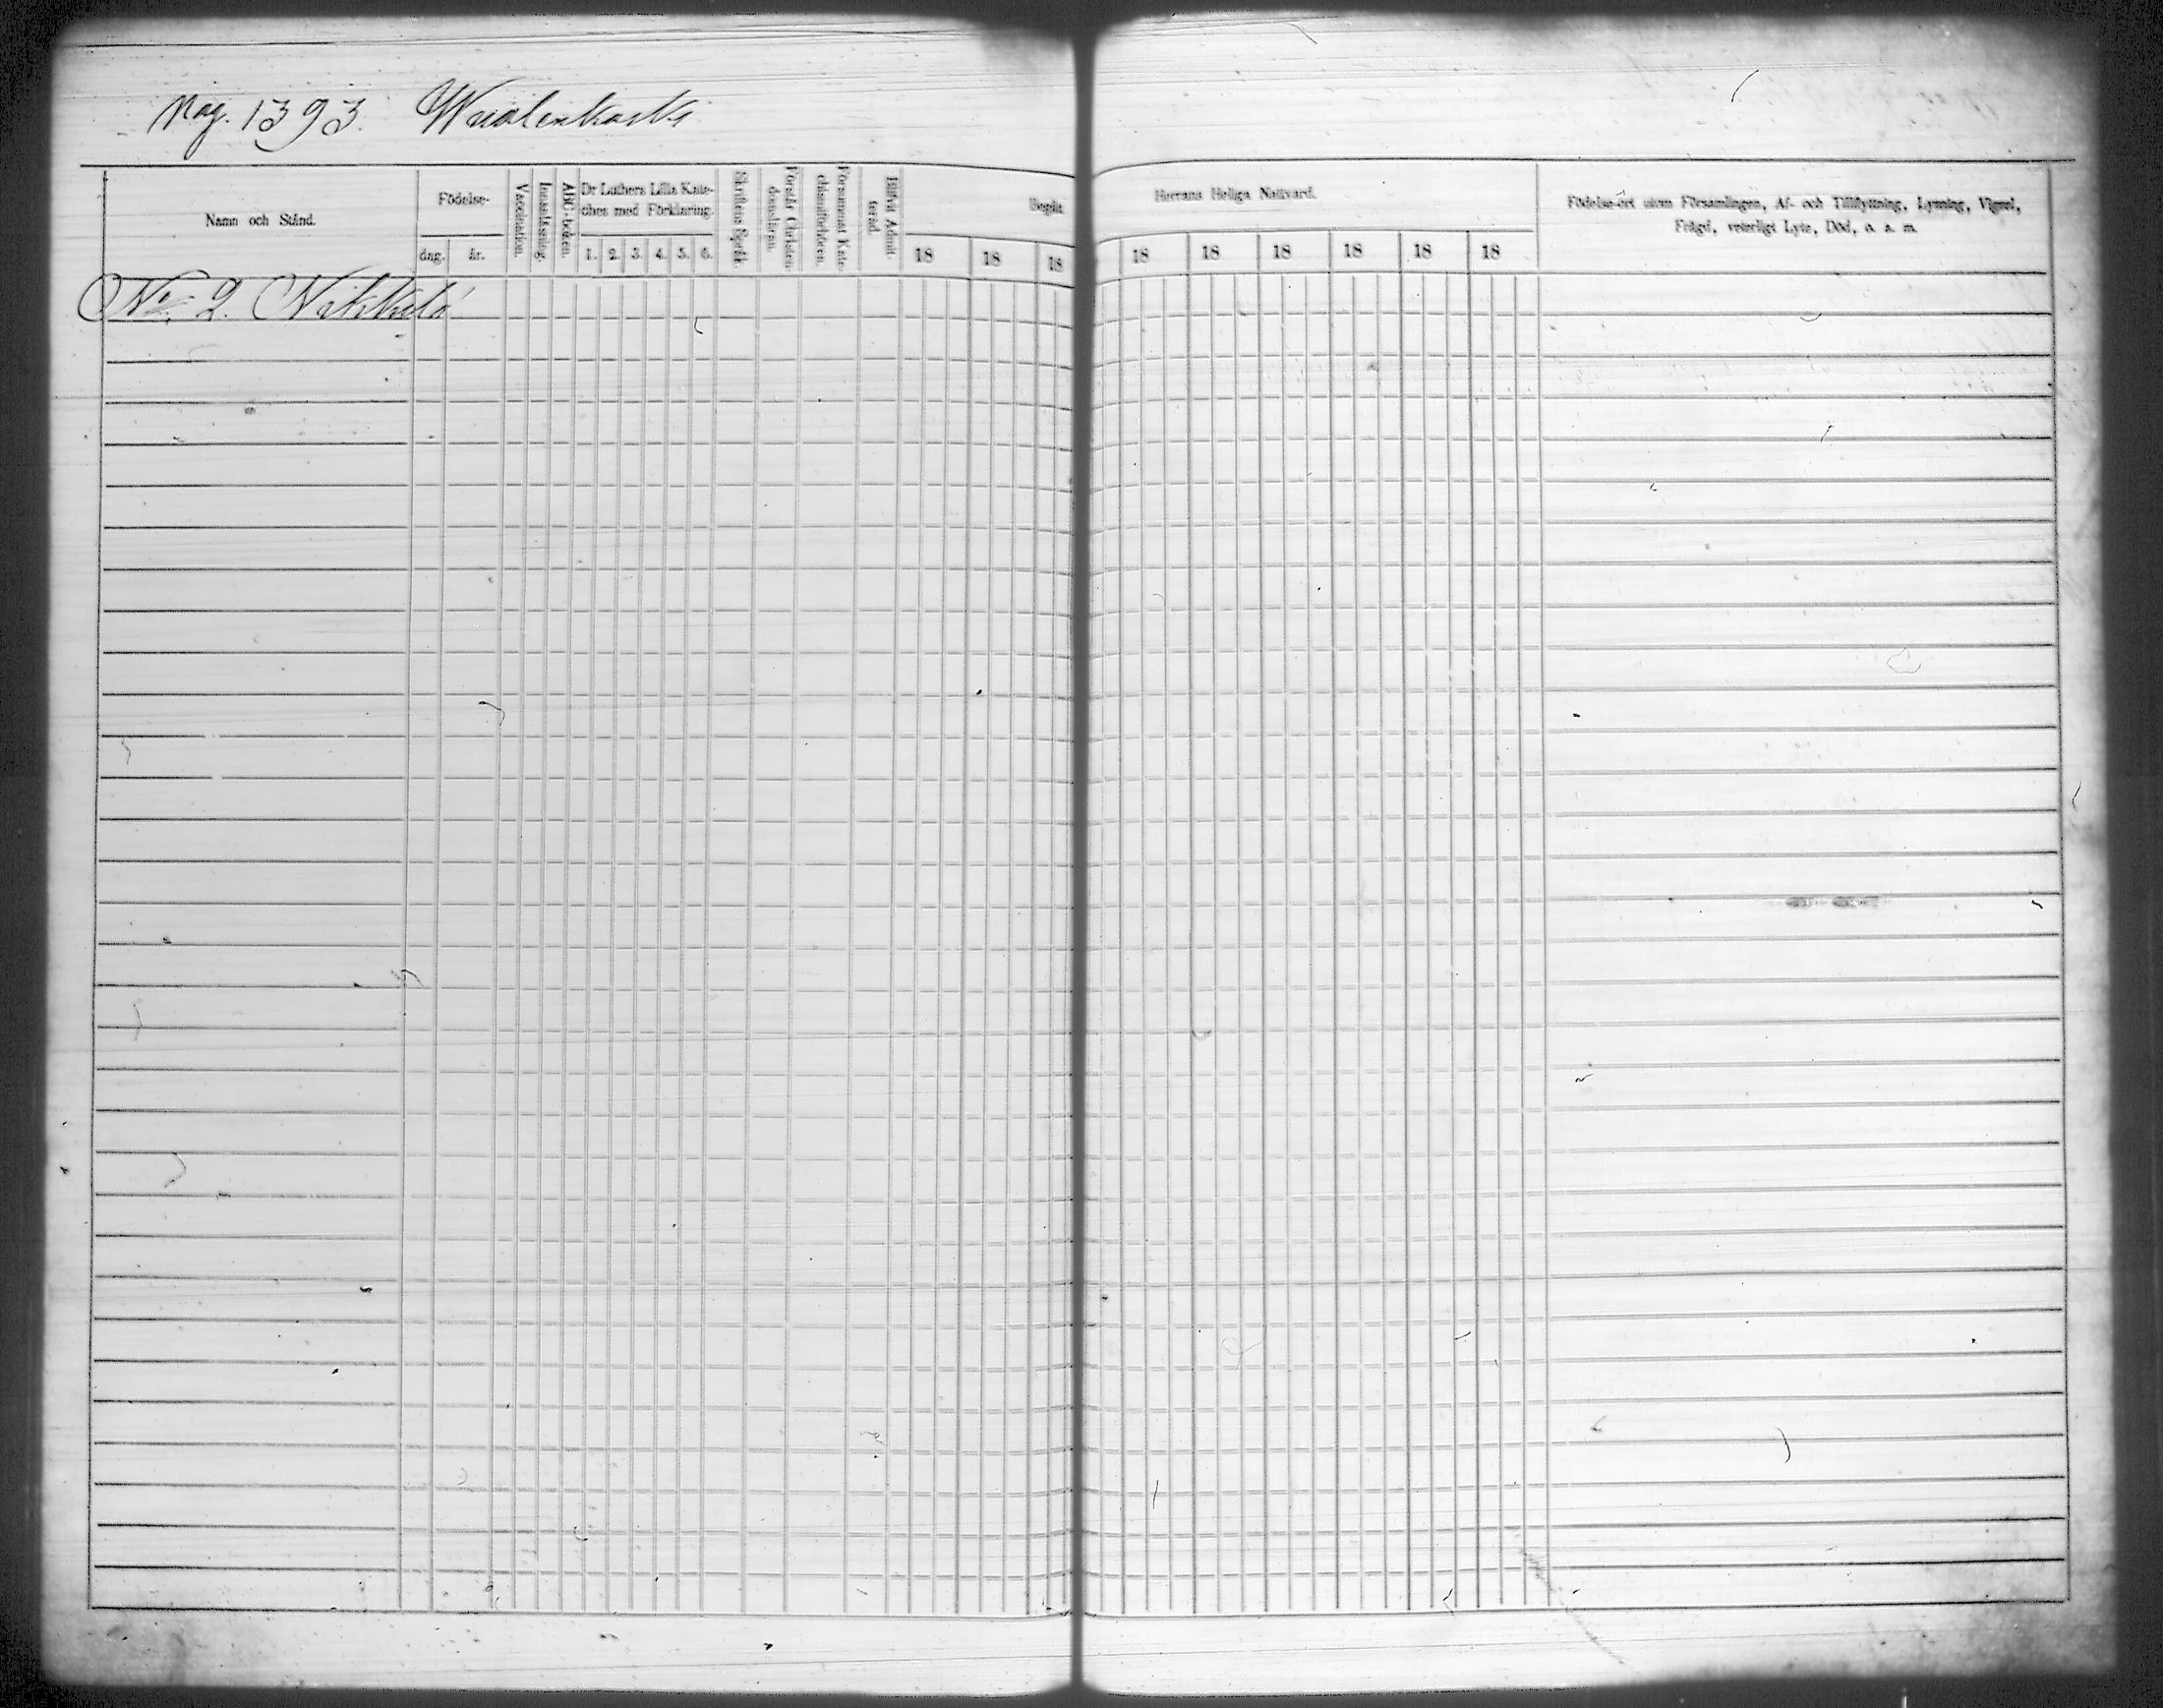 Pag. 1393. Wuolenkoski
Namn och Stånd.
Födelse-
dag.
år.
Vaccination.
Innanläsning.
ABC-boken.
Dr Luthers Lilla Kate-
ches med Förklaring.
1. 2. 3. 4. 5. 6.
Skriftens Språk.
Förstår Christen-
domsläran.
Försummat Kate-
chismiförhören.
Blifvit Admit-
terad.
Begått
18 18 18
Herrans Heliga Nattvard.
18 18 18 18 18 18
Födelse-ort utom Församlingen, Af- och Tillflyttning, Lysning, Vigsel,
Frägd, veterligt Lyte, Död, o. s. m.
No 2. Nikkilä